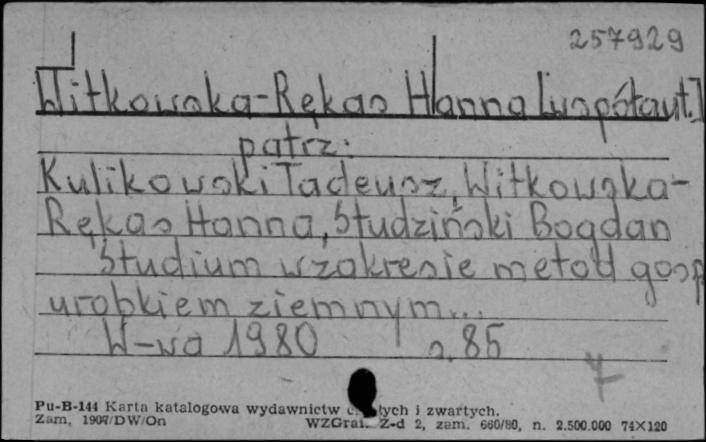 257929
Witkowska-Rękas Hanna [współaut.]
patrz:
Kulikowski Tadeusz, Witkowska-
Rękas Hanna, Studziński Bogdan
Studium w zakresie metod gosp
urobkiem ziemnym...
W-wa 1980 s. 85
Pu-B-144 Karta katalogowa wydawnictw i zwartych.
Zam. 1907/DW/On WZGraf. Z-d 2, zam. 660/80, n. 2.500.000 74X120